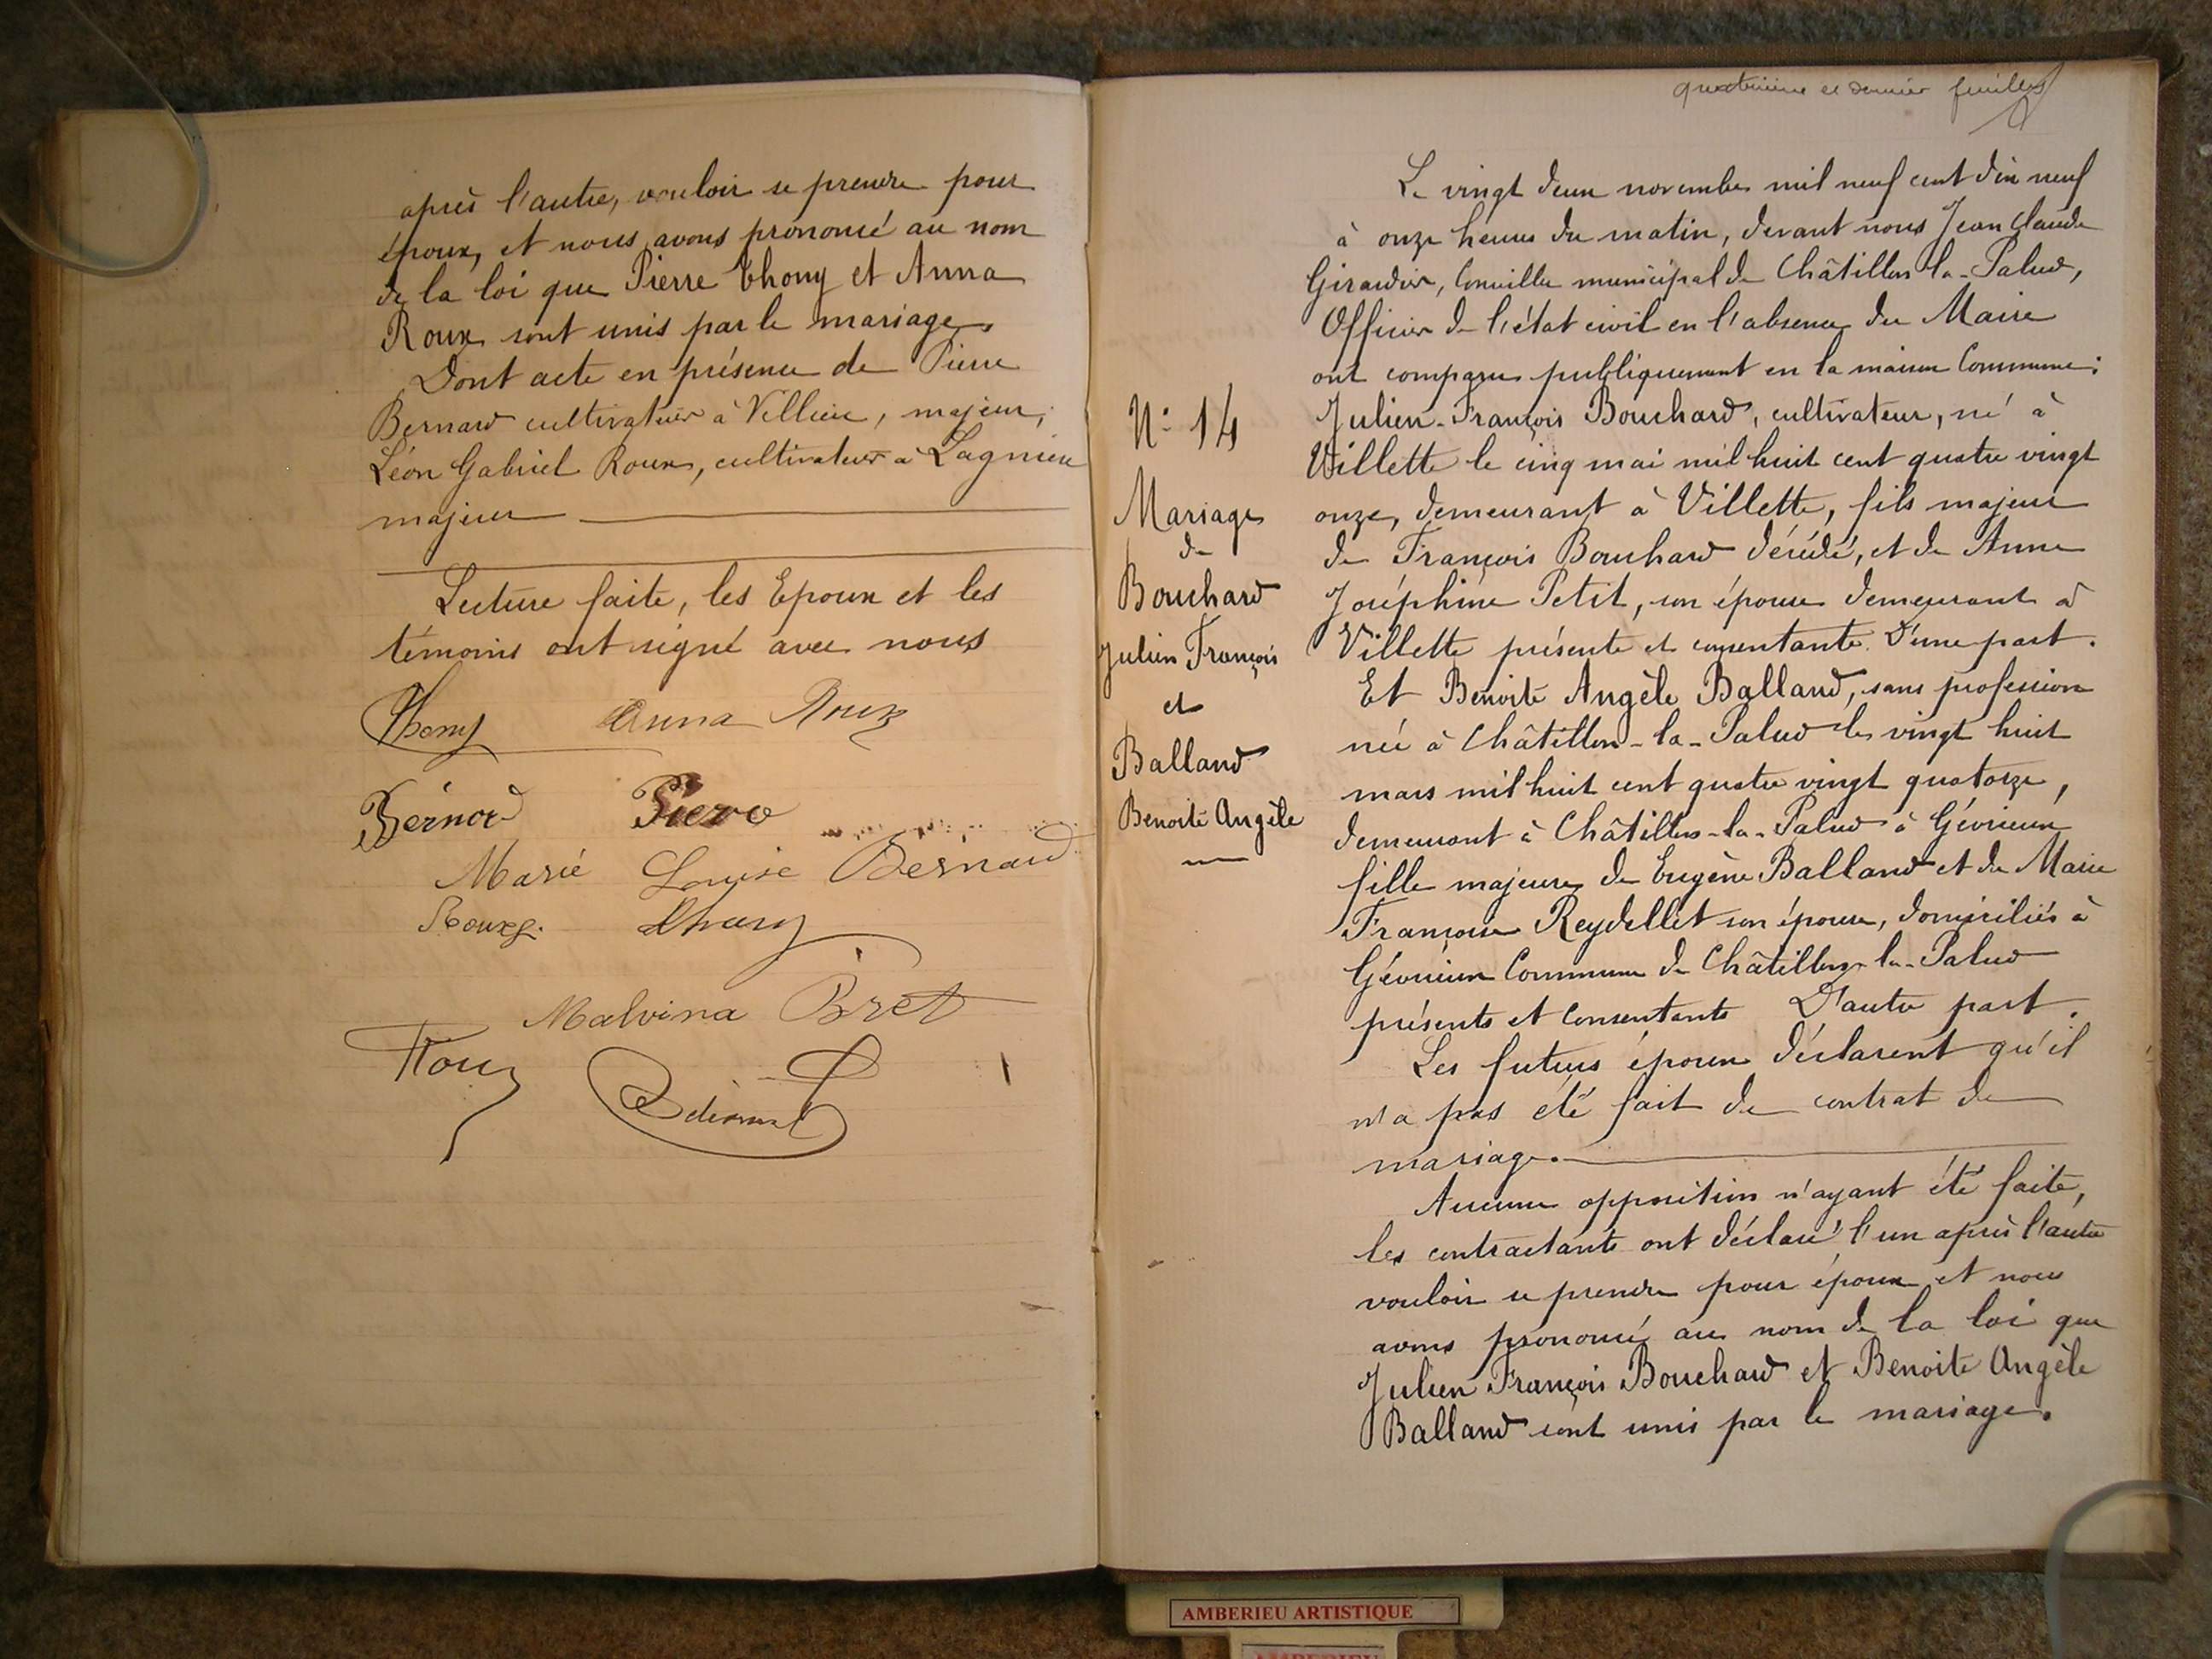 après l'autre, vouloir se prendre pour
époux, et nous avons prononcé au nom
de la loi que Pierre Thony et Anna
Roux sont unis par le mariage.
Dont acte en présence de Pierre
Bernard cultivateur à Villieu, majeur,
Léon Gabriel Roux, cultivateur à Lagnieu
majeur
Lecture faite, les Epoux et les
témoins ont signé avec nous
Thony Anna Roux
Bernard Pierre
Marie Louise Bernard
Roux
Malvina Bret
Roux
quatrième et dernier feuillet
Le vingt deux novembre mil neuf cent dix neuf
à onze heures du matin, devant nous Jean Claude
Girardin, Conseiller municipal de Châtillon la-Palud,
Officier de l'état civil en l'absence du Maire
ont comparu publiquement en la maison Commune:
Julien-François Bouchard, cultivateur, né à
Villette le cinq mai mil huit cent quatre vingt
onze, demeurant à Villette, fils majeur
de François Bouchard décédé, et de Anne
Joséphine Petit, son épouse demeurant à
Villette présente et consentante D'une part.
Et Benoite Angèle Balland, sans profession
née à Châtillon-la-Palud le vingt huit
mars mil huit cent quatre vingt quatorze,
demeurant à Châtillon-la-Palud à Gévrieux
fille majeure de Eugène Balland et de Marie
Françoise Reydellet son épouse, domiciliés à
Gévrieux Commune de Châtillon-la-Palud
présents et consentants D'autre part.
Les futurs époux déclarent qu'il
n'a pas été fait de contrat de
mariage.
Aucune opposition n'ayant été faite,
les contractants ont déclaré l'un après l'autre
vouloir se prendre pour époux et nous
avons prononcé au nom de la loi que
Julien François Bouchard et Benoite Angèle
Balland sont unis par le mariage.
N° 14
Mariage
de
Bouchard
Julien François
et
Balland
Benoite Angèle
AMBERIEU ARTISTIQUE
AMBERIEU